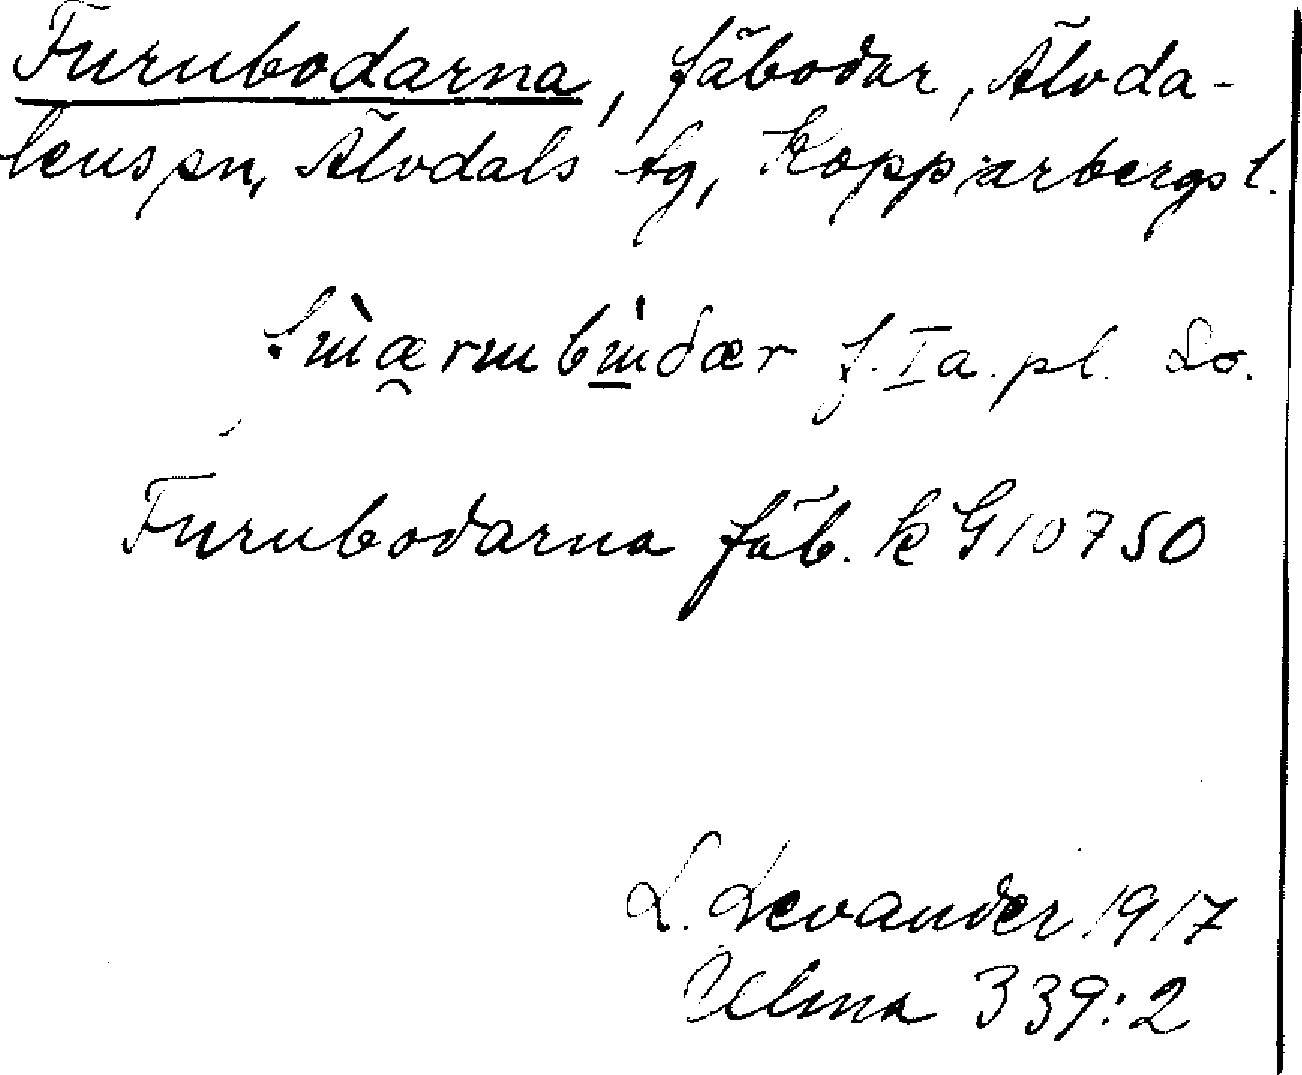 Furubodarna, fäbodar, Älvda-
lens sn, Älvdals tg, Kopparbergs l.
f. I a. pl. Lo.
Furubodarna fäb. k G 10750
L. Levander 1917
Ulma 339:2